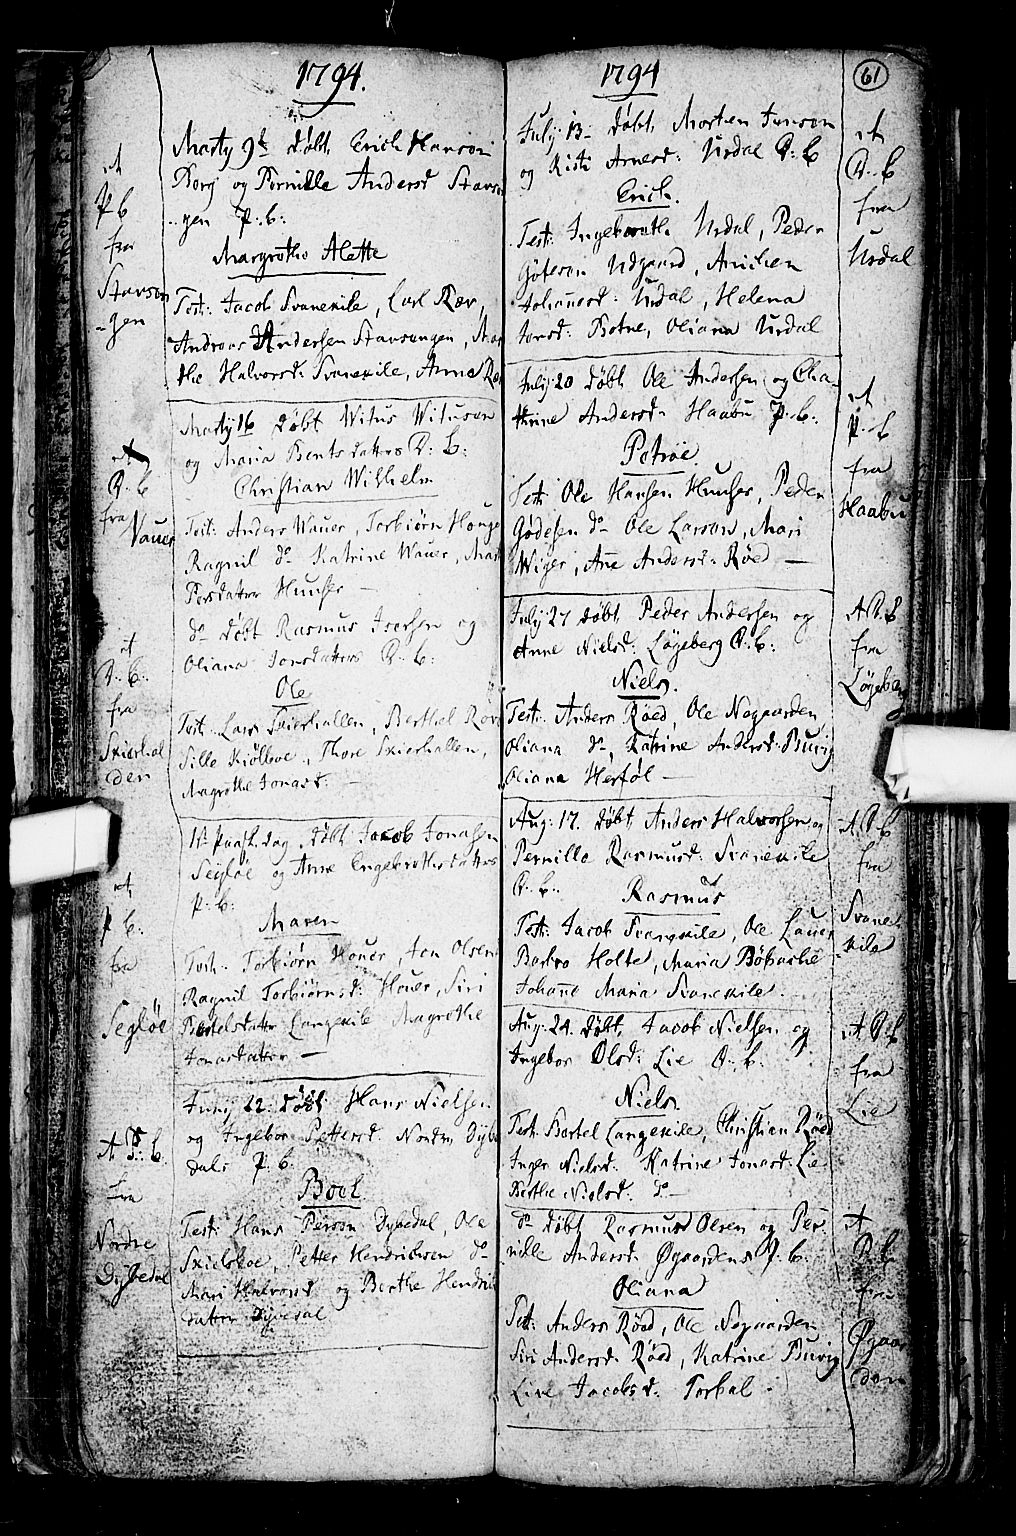 1794.
et
P b
fra
Stavsen
-gen
Marty 9de Døbt Erich Hansen
Borg og Pernille Andersd Stavsen
-gen P: b:
Margrethe Alette
Test: Jacob Svanekile, Carl Kær,
Andreas Andersen Stavsengen, Mar
the Halvorsd: Svanekile, Anne Kær
et
D. b
fra
Vauer
Marty 16 Døbt Witus Witusen
og Maria Bentsdatters D: b:
Christian Wilhelm
Test: Anders Wauer, Torbiørn Houge
Ragnil do Katrine Wauer, Mari
Persdatter Huuser —
et
D: b:
fra
Skierhal
den
do Døbt Rasmus Iversen og
Oliana Jonsdatters D: b:
Ole
Test: Lars Skierhallen, Berthel Røv
Sille Kiølboe, Thore Skierhallen,
Magrethe Jonasd: —
et
P b:
fra
Segløe
1te Paask. dag Døbt Jacob Jonasen
Segløe og Anne Engebrethsdatters
P: b:
Maren
Test: Torbiørn Houer, Jon Olsen
Ragnil Torbiørnsd: Houer, Siri
Bertelsdatter Langekile Magrethe
Jonasdatter —
et P: b.
fra
Nordre
Dybedal
Juny 22. Døbt Hans Nielsen
og Ingebor Pettersd. Nordre Dybe
dals P. b.
Boel.
Test: Hans Person Dybedal, Ole
Skielsboe, Petter Hendrichsen do
Mari Halvorsd og Berthe Hendrich
datter Dybedal
1794
61
July 13— Døbt Morten Jonson
og Kisti Arnesd: Urdal D: b
et
D. b
fra
Urdal
Erich.
Test: Ingeborethe Urdal, Peder
Göteson Udgaard, Anichen
Johannesd: Urdal, Helena
Jonsd: Botne, Oliana Urdal
July 20 Døbt Ole Andersen og Cha-
thrine Andersd. Haabu P. b.
et
P. b
fra
Haabu
Petrøe
Test: Ole Hansen Huuser, Peder
Gødesen do Ole Larson, Mari
Wiger, Ane Andersd: Røed —
July 27 Døbt Peder Andersen og
Anne Nielsd: Løgeberg D: b:
et D. b
fra
Løgeberg
Niels.
Test: Anders Røed, Ole Nøgaarden
Oliana do, Katrine Andersd: Buvig
Oliana Herføl —
Aug: 17. Døbt Anders Halvorsen og
Pernille Rasmusd: Svanekile
D: b:
et D. b
fra
Svane
kile
Rasmus
Test: Jacob Svanekile, Ole Lauer
Barbro Holte, Maria Bøbachs
Johanne Maria Svanekile.
Aug: 24. Døbt, Jacob Nielsen og
Ingebor Olsd: Lie D: b:
et D. b
fra
Lie
Niels.
Test: Bertel Langekile, Christian Røed
Inger Nielsd: Katrine Jonasd: Lie
Berthe Nielsd: do —
do Døbt Rasmus Olsen og Per
nille Andersd: Øgaardens P. b:
et
P. b
fra
Øgaar
den
Oliana
Test: Anders Røed, Ole Nøgaarden
Siri Andersd: Røed, Katrine Buvig
Live Jacobsd: Torbal.